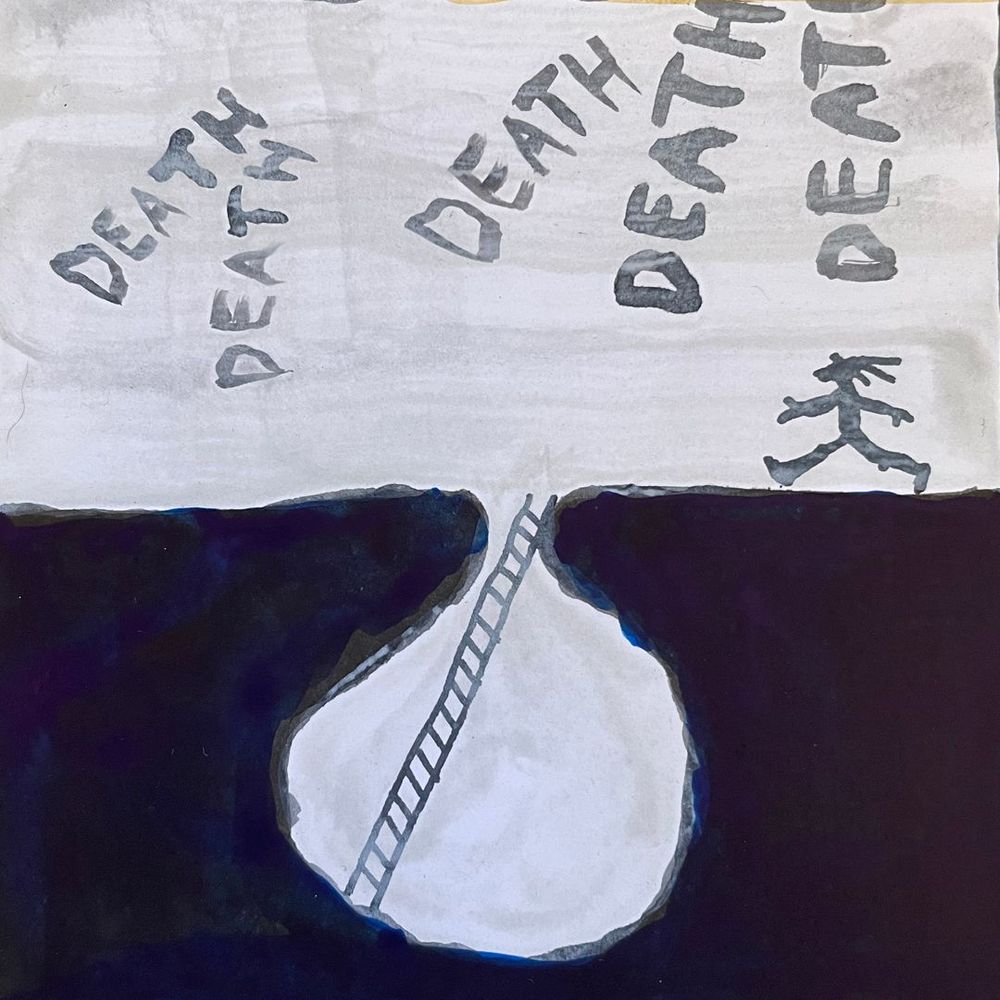 DEATH
DEATH
DEATH
DEATH
DEAT